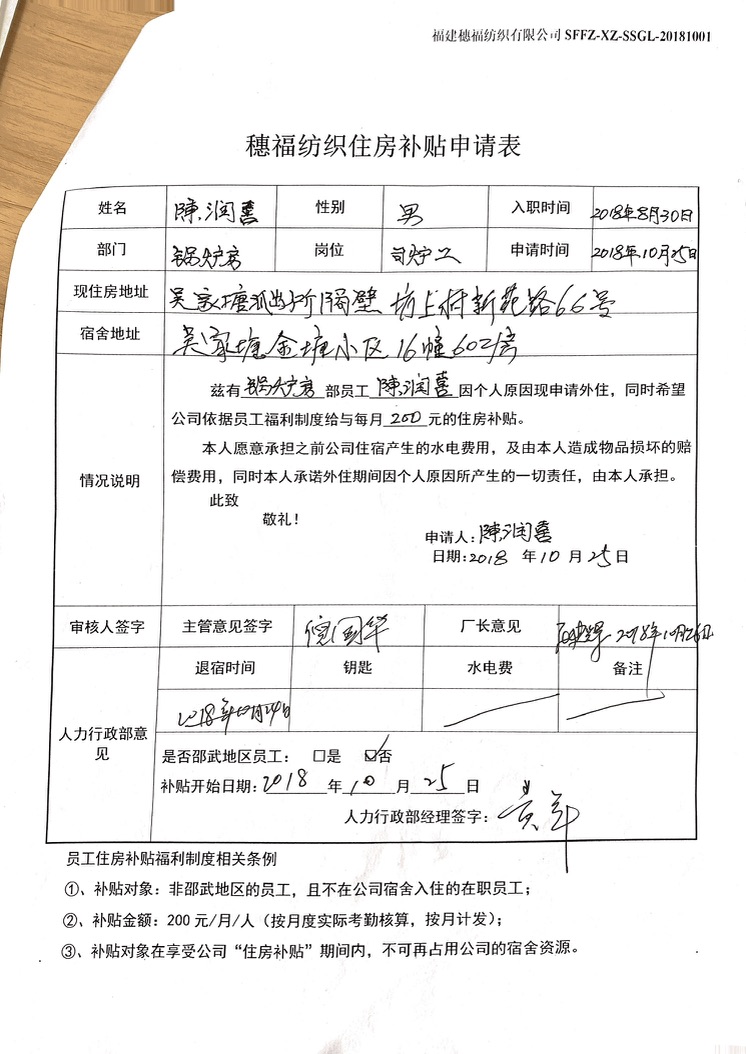 福建穗福纺织有限公司 SFFZ-XZ-SSGL-20181001
穗福纺织住房补贴申请表
姓名 陳润喜 性别 男 入职时间 2018年8月30日
部门 锅炉房 岗位 司炉工 申请时间 2018年10月25日
现住房地址 吴家塘派出所隔壁 坊上村新苑路66号
宿舍地址 吴家塘金塘小区16幢602房
情况说明
兹有 锅炉房 部员工 陳润喜 因个人原因现申请外住，同时希望
公司依据员工福利制度给与每月 200 元的住房补贴。
本人愿意承担之前公司住宿产生的水电费用，及由本人造成物品损坏的赔
偿费用，同时本人承诺外住期间因个人原因所产生的一切责任，由本人承担。
此致
敬礼！
申请人：陳润喜
日期：2018 年 10 月 25 日
审核人签字 主管意见签字 厂长意见 2018年10月26日
人力行政部意见
退宿时间 钥匙 水电费 备注
2018年10月24日
是否邵武地区员工： □是 ☑否
补贴开始日期：2018 年 10 月 25 日
人力行政部经理签字：
员工住房补贴福利制度相关条例
①、补贴对象：非邵武地区的员工，且不在公司宿舍入住的在职员工；
②、补贴金额：200 元/月/人（按月度实际考勤核算，按月计发）；
③、补贴对象在享受公司“住房补贴”期间内，不可再占用公司的宿舍资源。